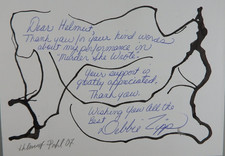 Dear Helmut,
Thank you for your kind words
about my performance on
"Murder She Wrote".
Your support is
greatly appreciated.
Thank you.
Wishing You All the
Best
Debbie Zipp